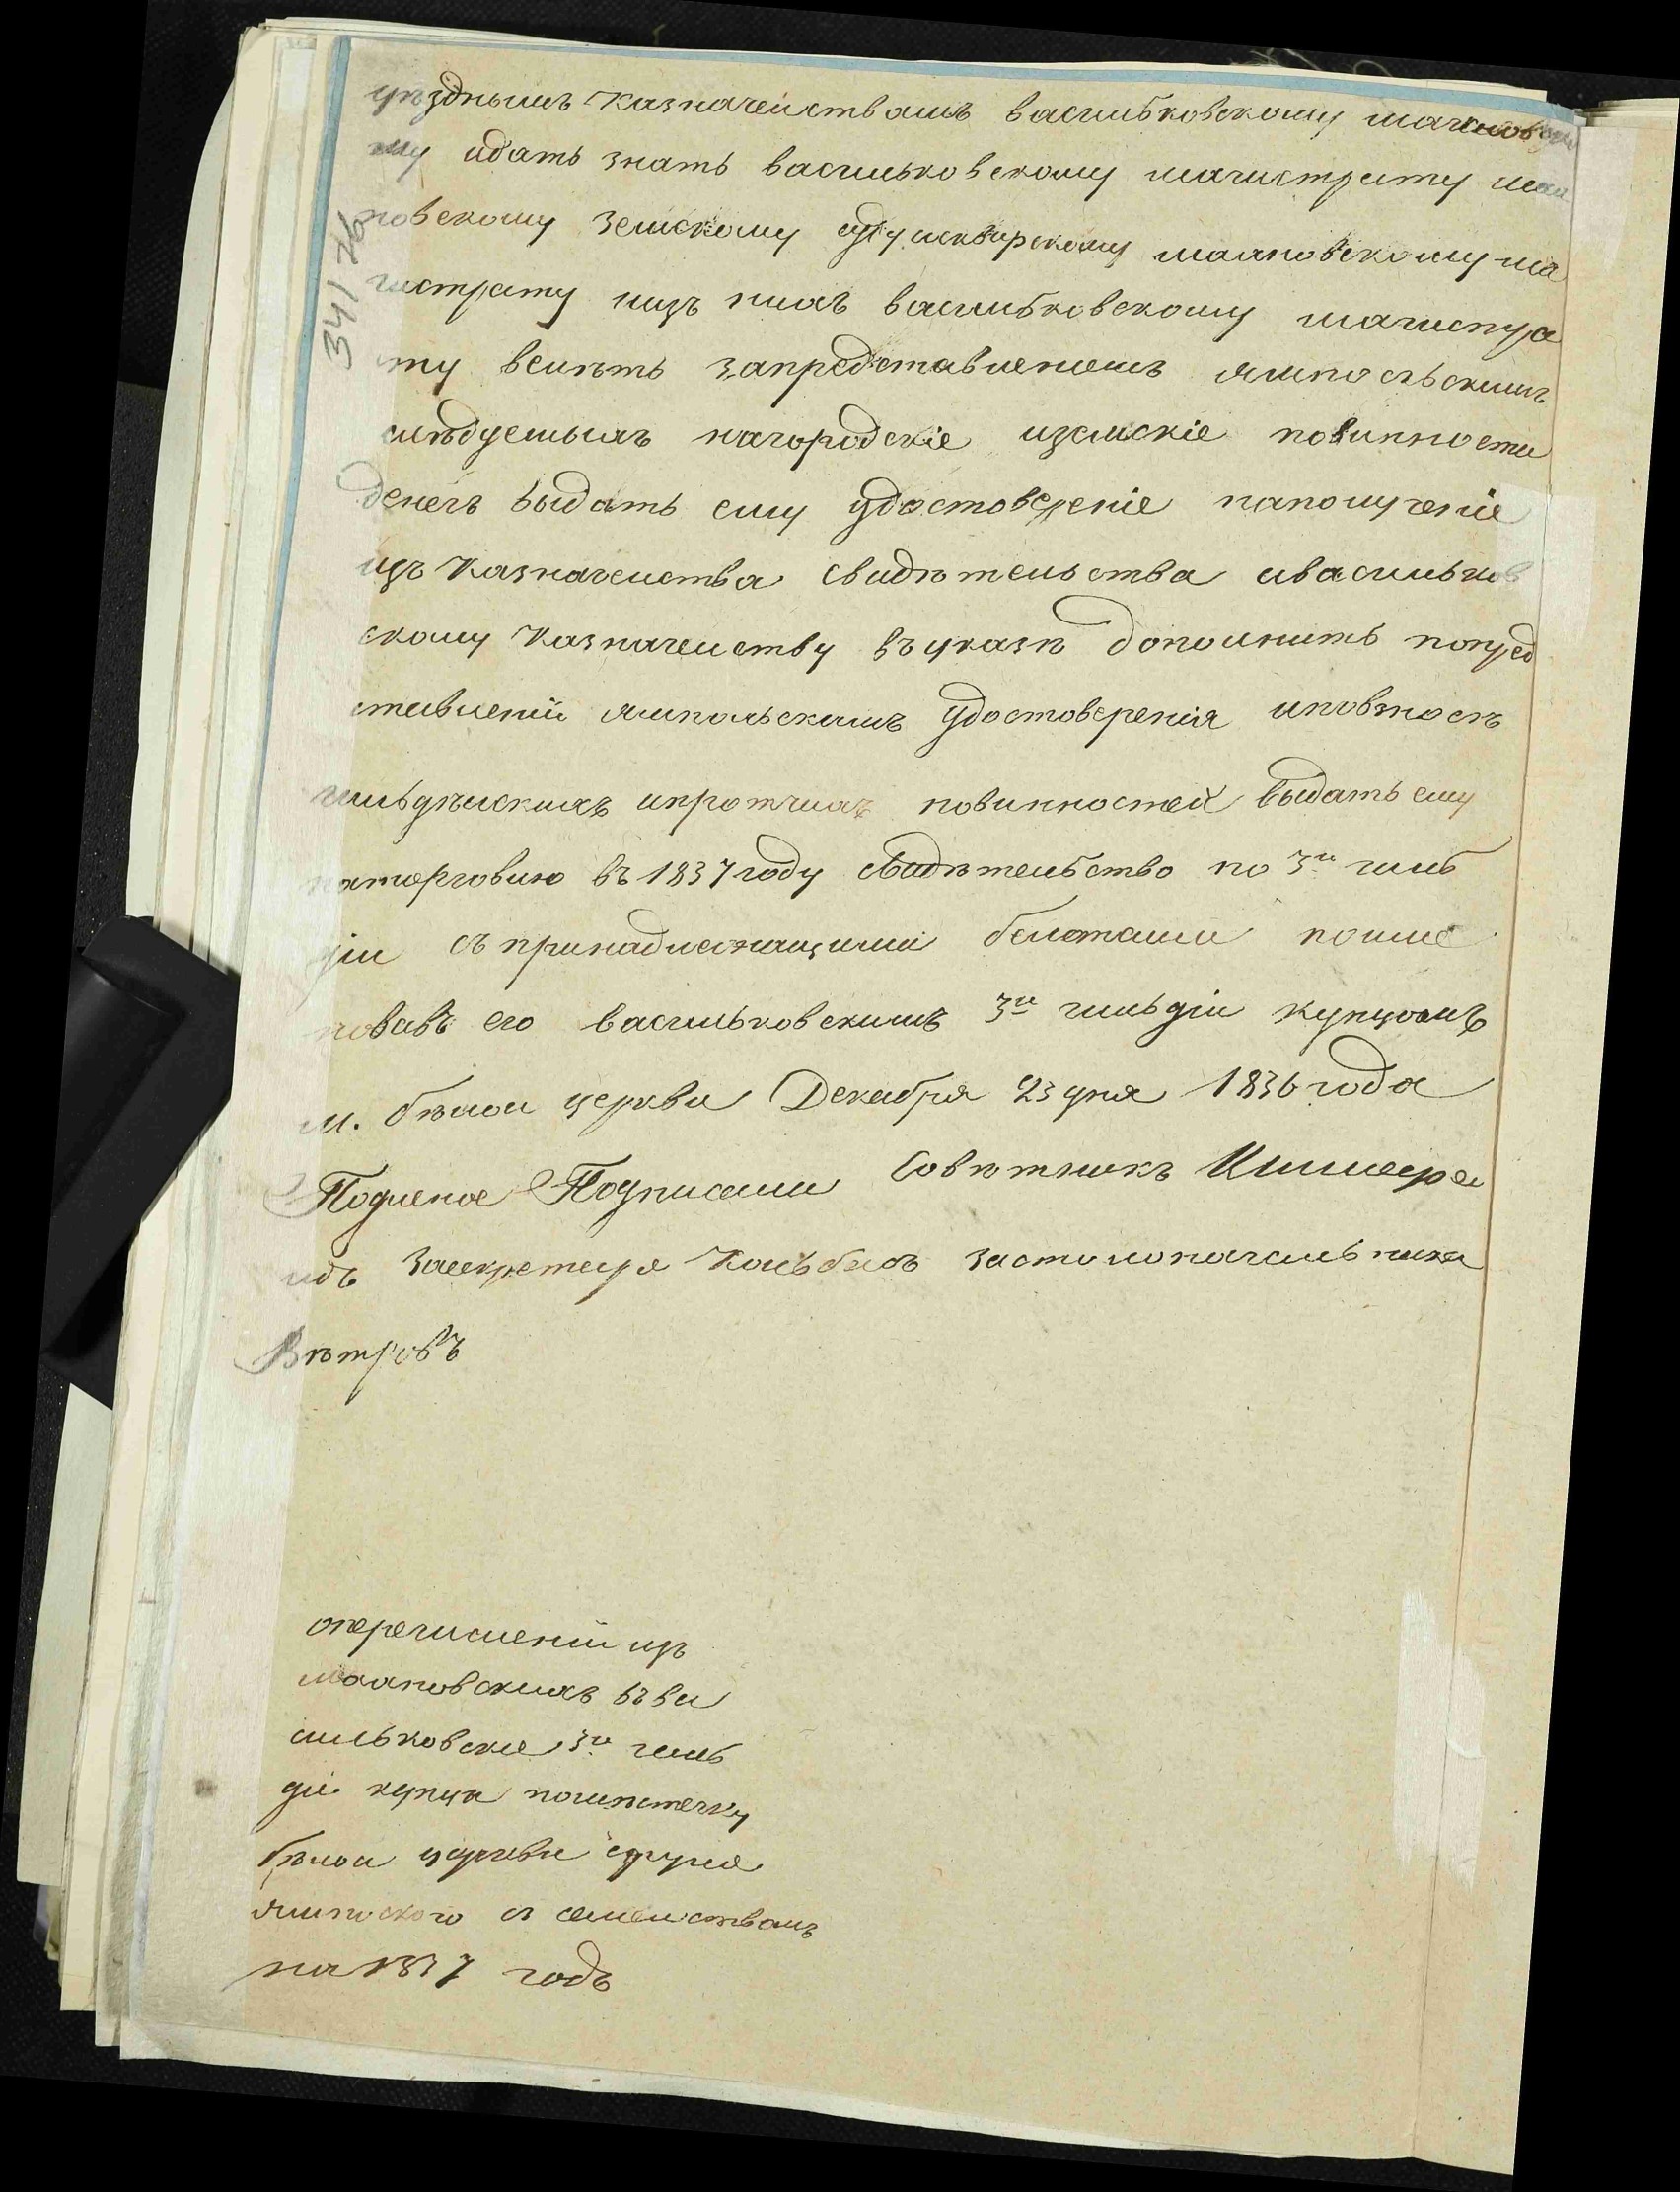 уѣзднымъ казначействамъ васильковскому махновско
му идать знать васильковскому магистрату мах
новскому земскому суду исквирскому махновскому ма
гистрату изъ нихъ васильковскому магистра
ту велѣть запредставленіемъ ямпольскимъ
слѣдуемыхъ нагородскіе иземскіе повинности
денегъ выдать ему удостовереніе наполученіе
изъ казначейства свидѣтельства ивасильков
скому казначейству въ указѣ дополнить попред
ставленіи ямпольскимъ удостоверенія иповзносѣ
гильдѣйскихъ ипротчихъ повинностей выдать ему
наторговлю въ 1837 году свидѣтельство по 3й гиль
діи съ принадлежащими белетами поиме
новавъ его васильковскимъ 3й гильдіи купцомъ
м. бѣлой церкви Декабря 23 дня 1836 года
Подленое Подписали Советникъ
за секретаря за столоначальника
Вѣтровъ
оперечисленіи изъ
махновскихъ въ ва
сильковскіе 3й гиль
діи купцы помѣстечку
бѣлой церкви сруля
ямпоского съ семействомъ
на 1837 годъ
341 76